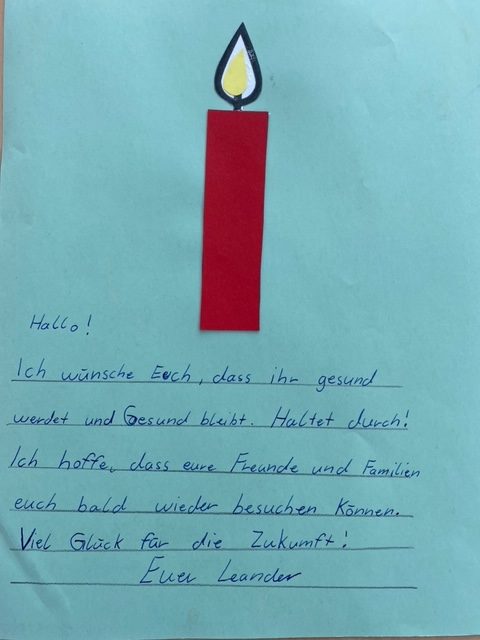 Hallo!
Ich wünsche Euch, dass ihr gesund
werdet und Gesund bleibt. Haltet durch!
Ich hoffe, dass eure Freunde und Familien
euch bald wieder besuchen Können.
Viel Glück für die Zukumft!
Euer Leander